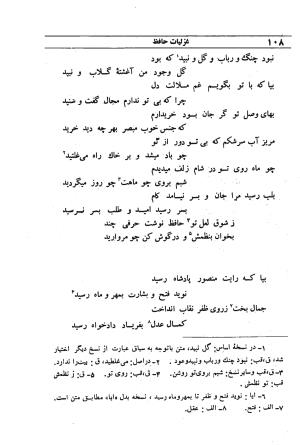 ۱۰۸ غزلیات حافظ
نبود چنگ و رباب و گل و نبید۱ که بود
گل وجود من آغشتهٔ گلاب و نبید
بیا که با تو بگویم غم ملالت دل
چرا که بی تو ندارم مجال گفت و شنید
بهای وصل تو گر جان بود خریدارم
که جنس خوب مبصر بهر چه دید خرید
مریز آب سرشکم که بی تو دور از تو
چو باد میشد و بر خاک راه می‌غلتید۲
چو ماه روی تو در شام زلف میدیدم
شبم بروی چو ماهت۳ چو روز میگردید
بلب رسید مرا جان و بر نیامد کام
بسر رسید امید و طلب بسر نرسید
ز شوق لعل تو۴ حافظ نوشت حرفی چند
بخوان بنظمش۵ و در گوش کن چو مروارید
بیا که رایت منصور پادشاه رسید
نوید فتح و بشارت بمهر و ماه رسید۶
جمال بخت۷ ز روی ظفر نقاب انداخت
کمال عدل۸ بفریاد دادخواه رسید
۱- در نسخهٔ اساس: گل نبید، متن باتوجه به سیاق عبارت از نسخ دیگر اختیار
شد، ق،قب: نبود چنگ و رباب و نبید و عود. ۲- در اصل: می‌غلطید، ق: بیت را ندارد.
۳- ق،قب و سایر نسخ: شبم بروی تو روشن ۴- ق،قب: روی تو. ۵- ق: ز نظمش
قب: تو نظمش.
۶- ایا: نوید فتح و ظفر تا بمهر و ماه رسید، نسخه بدل «ایا» مطابق متن است.
۷- الف: فتح. ۸- الف: عقل.